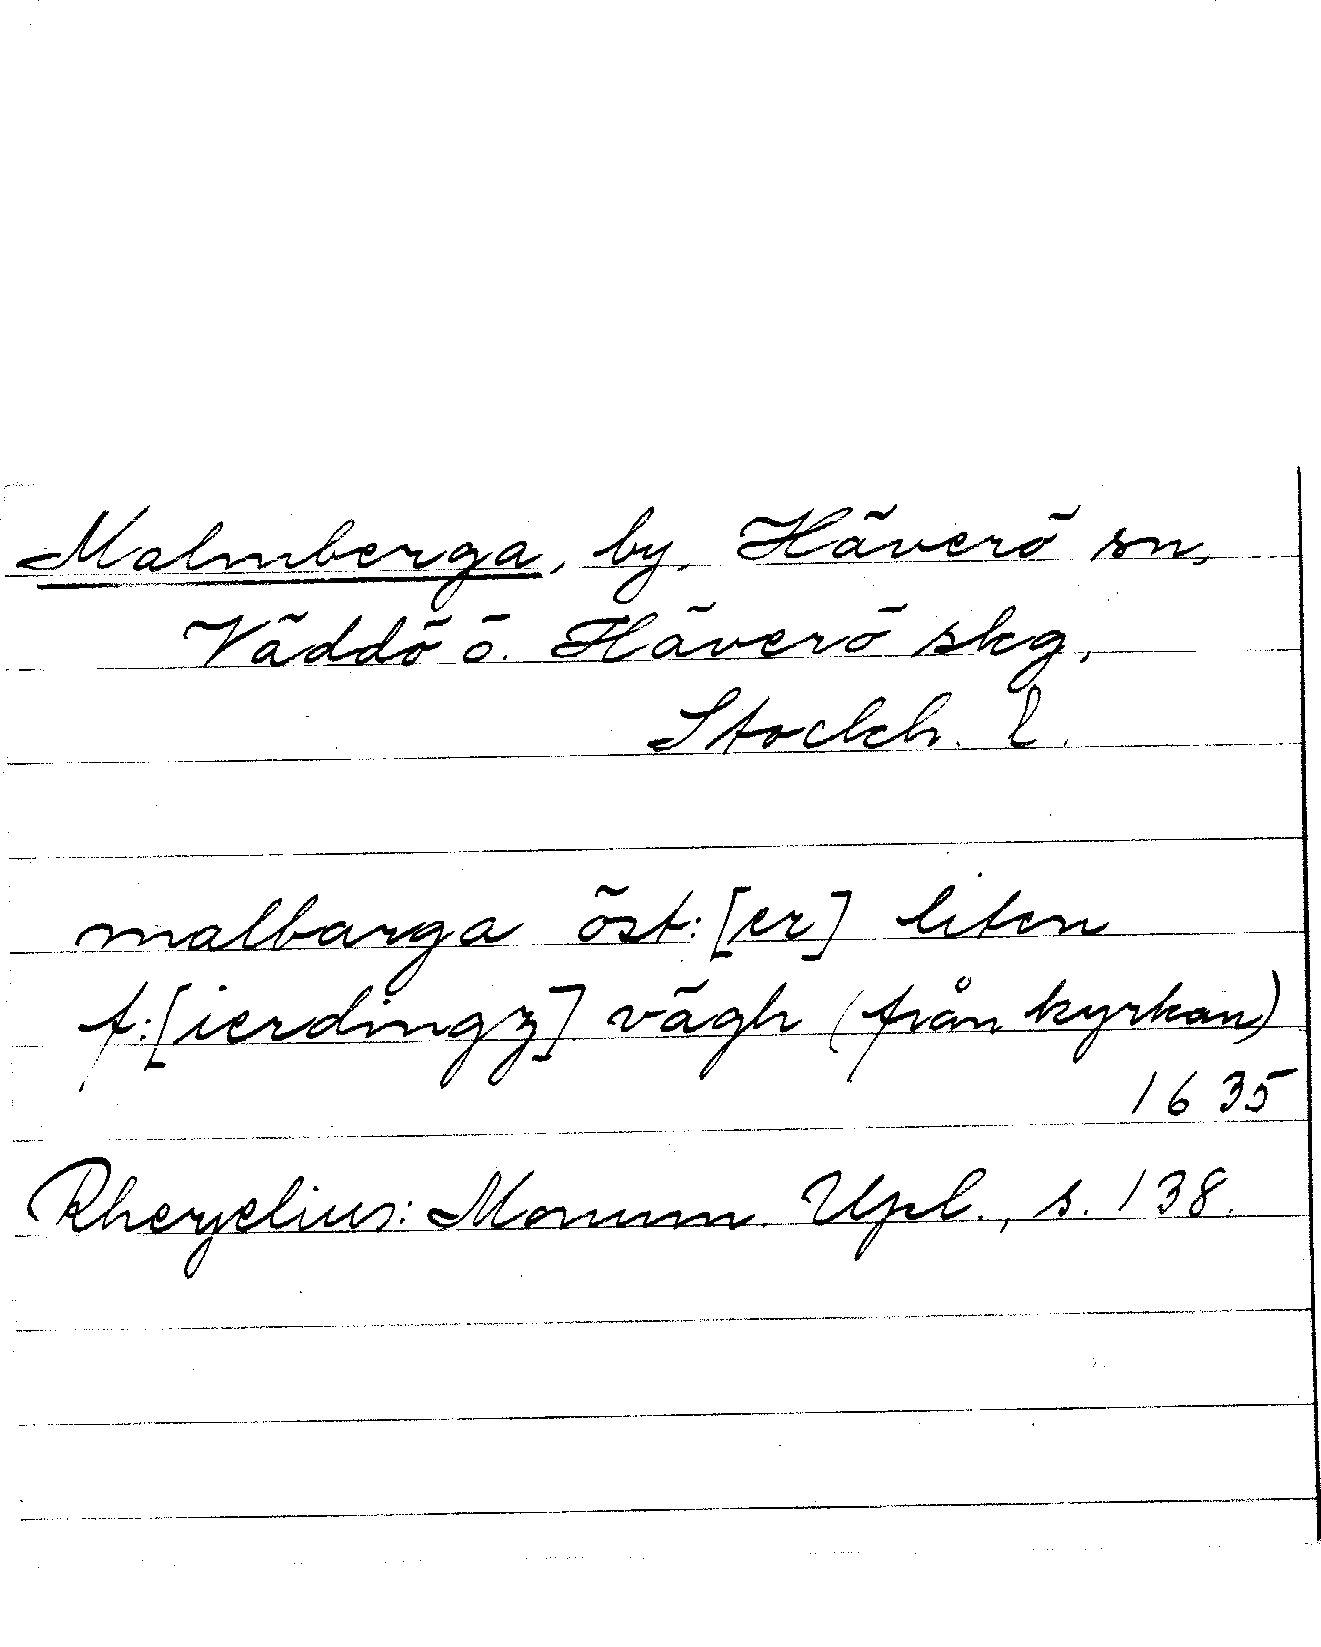 Malmberga, by, Häverö sn,
Väddö ö. Häverö skg,
Stockh. l.
malbarga öst:[er] liten
f:[ierdingz] vägh (från kyrkan)
1635
Rhezelius: Monum. Upl., s. 138.